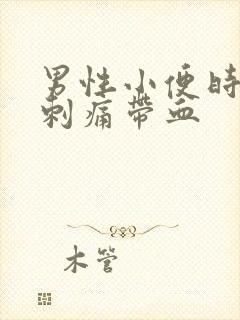 男性小便时
刺痛带血
木管